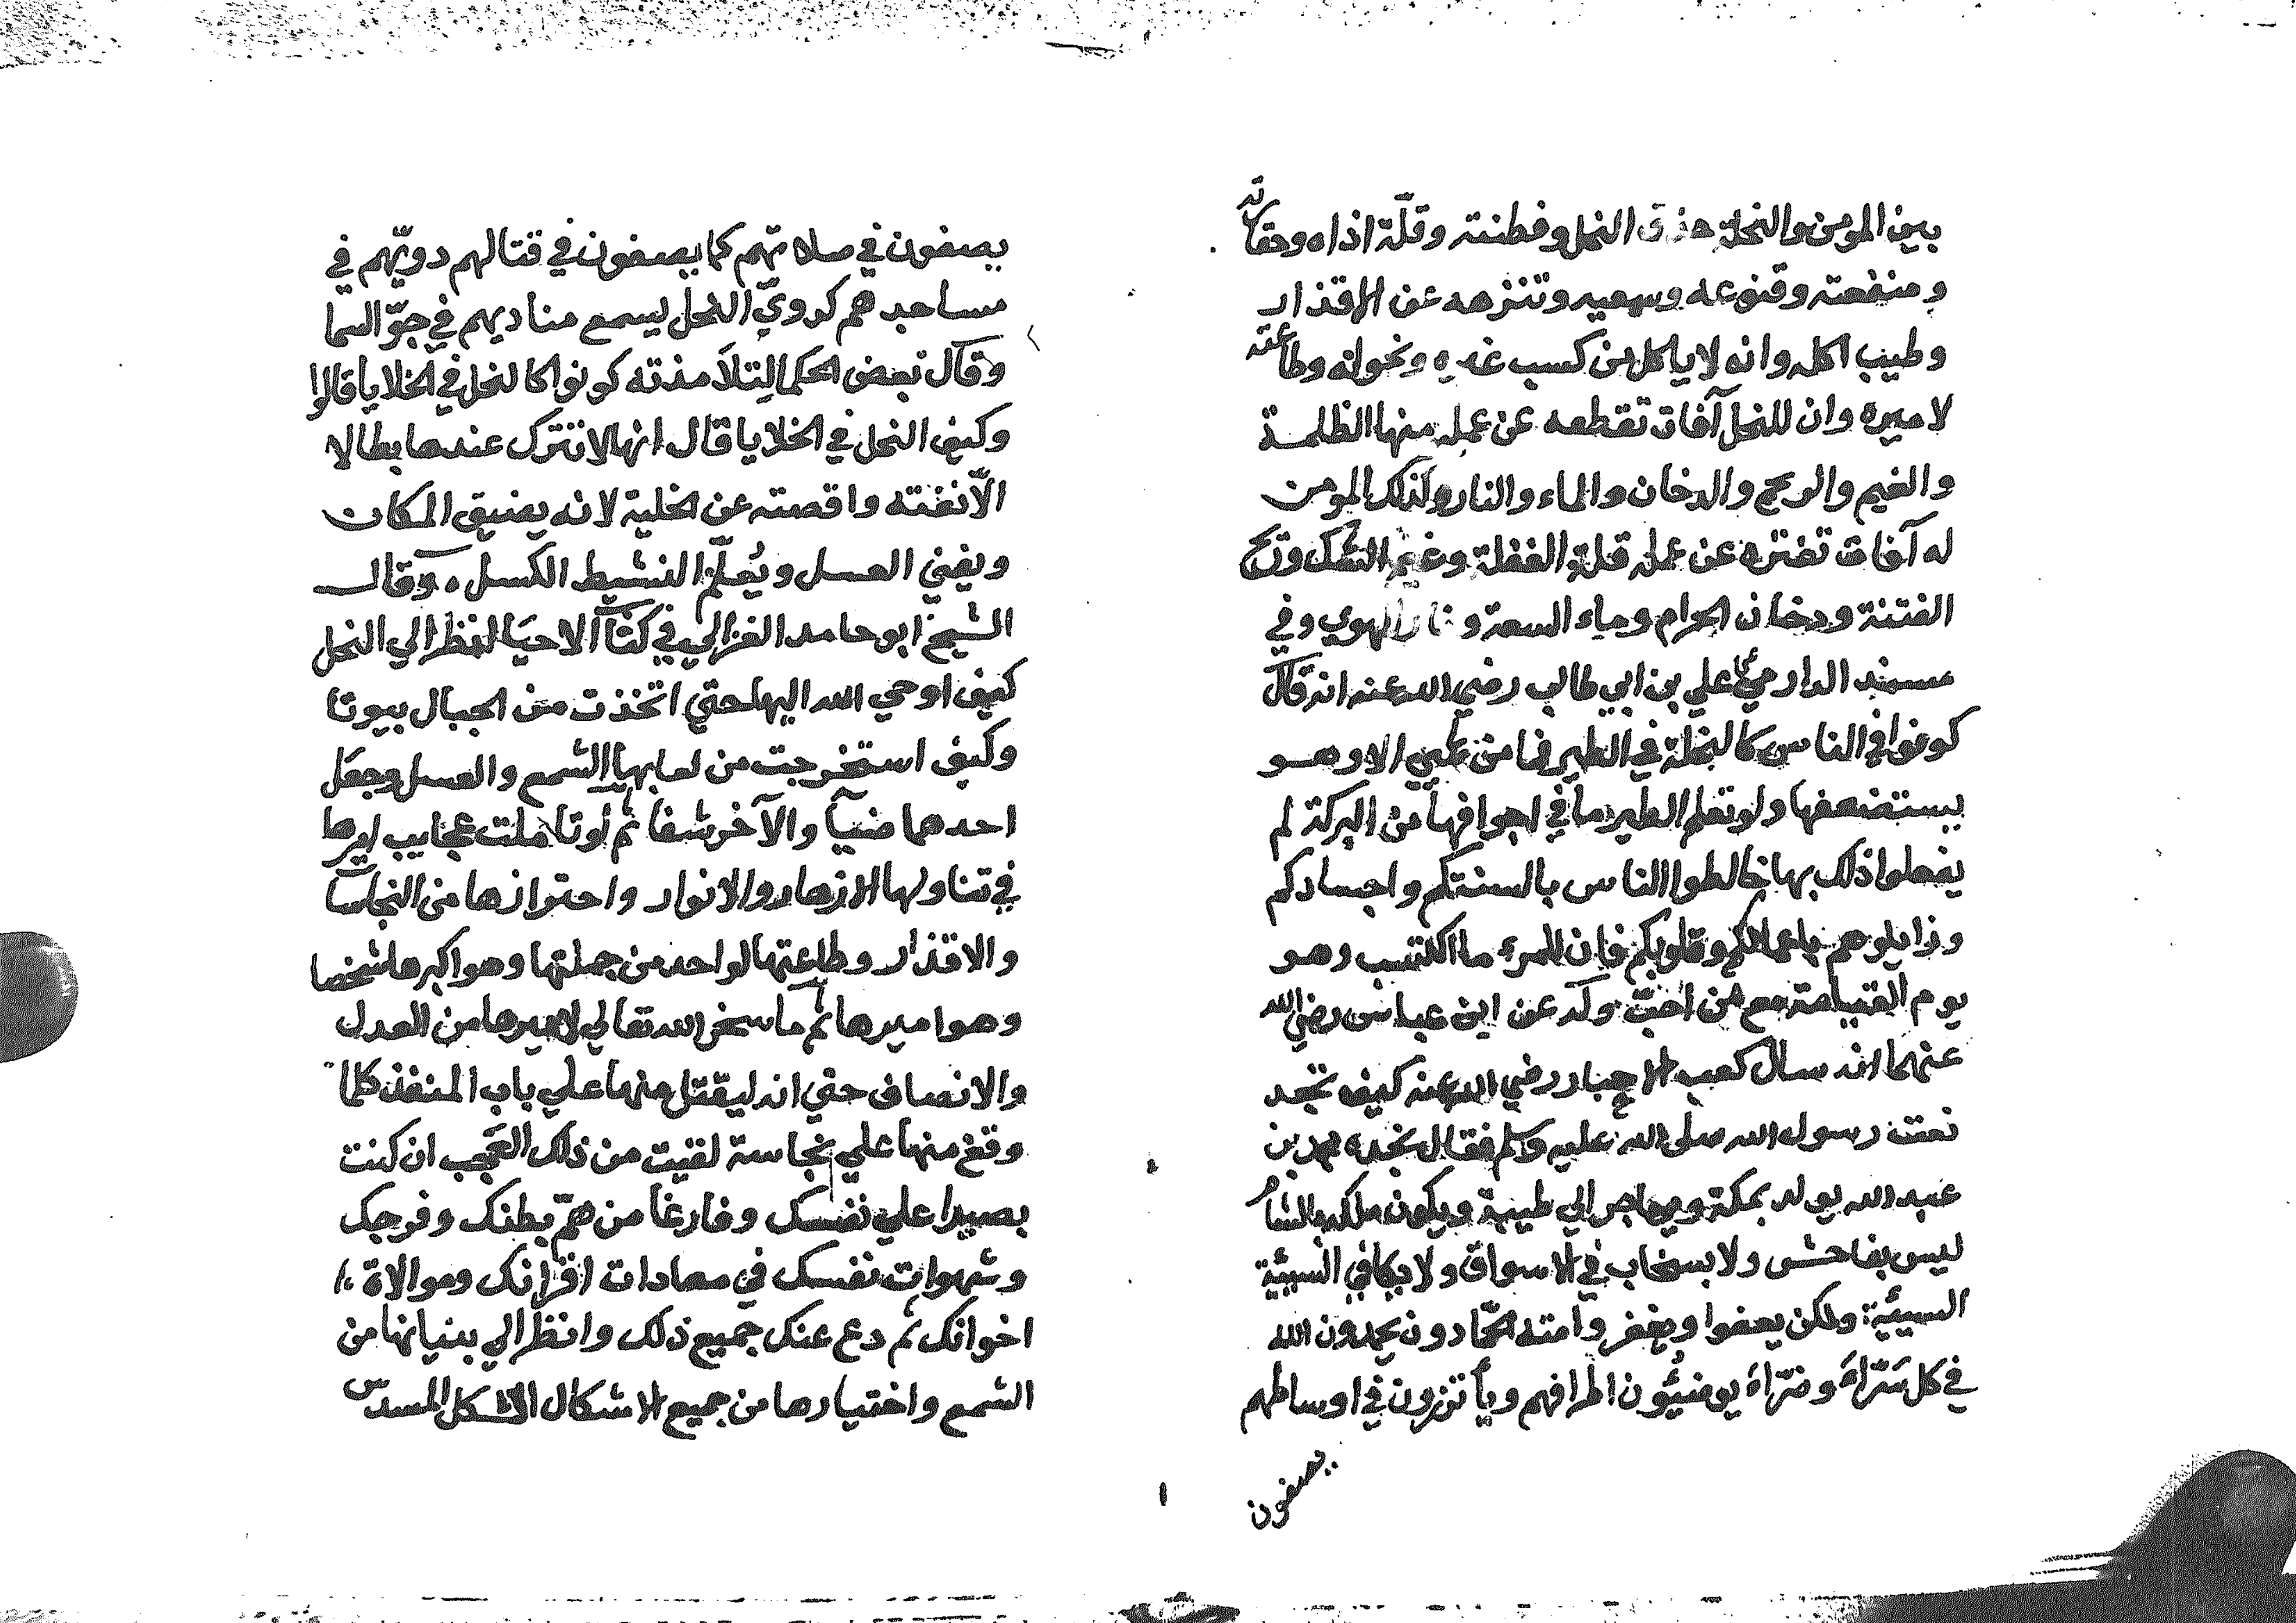 بين المومن والنحلة حذق النحل وفطنته وقلّة اذاه وحقارته
ومنفعته وقنوعه وسعيه وتنزهه عن الاقذار
وطيب اكله وانه لا ياكل من كسب غيره ونحوله وطاعته
لاميره وان للنحل آفات تقطعه عن عمله منها الظلمة
والغيم والريح والدخان والماء والنار وكذلك المومن
له آفات تفتره عن عمله الغفلة وغيم الشك وريح
الفتنة ودخان الحرام وماء السعة ونار الهوي وفي
مسند الدارمي علي بن ابي طالب رضي الله عنه انه قال
كونوا في الناس كالنحلة في الطير فما من طير الا وهو
يستضعفها ولو تعلم الطير ما في اجوافها من البركة لم
يفعلوا ذلك بها خالطوا الناس بالسنتكم واجسادكم
وزايلوهم باعمالكم وقلوبكم فان للمرء ما اكتسب وهو
يوم القيامة مع من احبّ عن ابن عباس رضي الله
عنهما انه سال كعب الاحبار رضي الله عنه كيف تجد
نعت رسول الله صلى الله عليه وسلم فقال نجده محمد بن
عبد الله يولد بمكة ويهاجر الي طيبة ويكون ملكه بالشام
ليس بفاحش ولا بسخاب في الاسواق ولا يكافي السيئية
السيئية ولكن يعفوا ويغفر وامته الحمّادون يحمدون الله
في كل سَرّاءَ وضرّاءَ يوضئُون اطرافهم ويأتزرون في اوساطهم
يصفون
يصفون في صلاتهم كما يصفون في قتالهم دويّهم في
مساجدهم كدويّ النحل يسمع مناديهم في جوّ السما
وقال بعض الحكما لِتلَامذته كونوا كالنحل في الخلايا قالوا
وكيف النحل في الخلايا قال انها لا تترك عندها بطالا
الّا نفته واقصته عن الخلية لانه يضيق المكان
ويفني العسل ويُعلّم النشيط الكسل ، وقال
الشيخ ابو حامد الغزالي في كتاب الاحيا انظر الي النحل
كيف اوحي الله اليها حتي اتخذت من الجبال بيوتا
وكيف استخرجت من لعابها الشمع والعسل وجعل
احدهما ضيآ والآخر شفا ثم لو تاملت عجايب امرها
في تناولها الازهار والانوار واحترازها من النجاسات
والاقذار وطاعتها لواحد من جملتها وهو اكبرها شخصا
وهو اميرها ثم ما سخر الله تعالي لاميرها من العدل
والانصاف حتي انه ليقتل منها علي باب المنفذ كلما
وقع منها علي نجاسة لقيت من ذلك العجب ان كنت
بصيرا علي نفسك وفارغا من همّ بطنك وفرجك
وشهوات نفسك في معادات اقرانك وموالاة
اخوانك ثم دع عنك جميع ذلك وانظر الي بنيانها من
الشمع واختيارها من جميع الاشكال الشكل المسدس